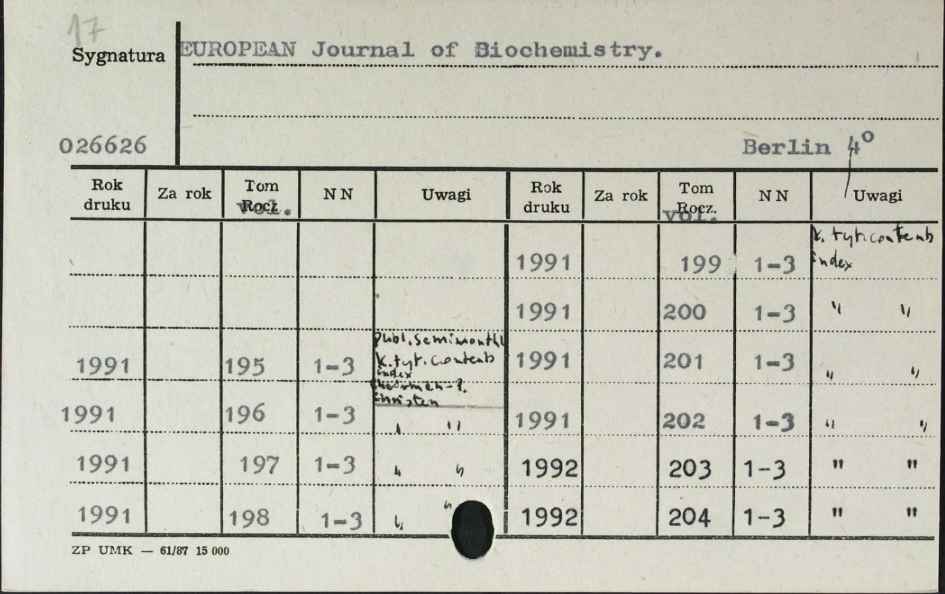 17
Sygnatura EUROPEAN Journal of Biochemistry.
026626 Berlin 4°
Rok druku Za rok Tom Rocz. vol. NN Uwagi Rok druku Za rok Tom Rocz. vol. NN Uwagi
1991 199 1-3 k. tyt. contents index
1991 200 1-3 " "
1991 195 1-3 publ. semimonthly k. tyt. contents index Chairman - P. Christen 1991 201 1-3 " "
1991 196 1-3 " " 1991 202 1-3 " "
1991 197 1-3 " " 1992 203 1-3 " "
1991 198 1-3 " " 1992 204 1-3 " "
ZP UMK — 61/87 15 000